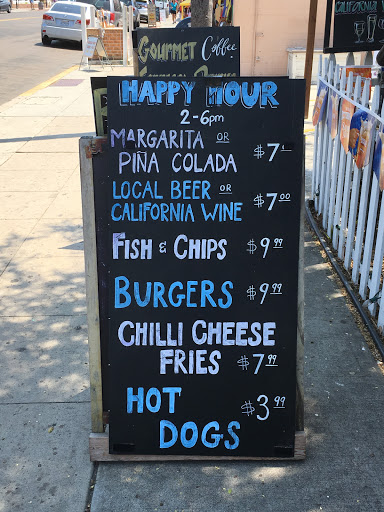 GOURMET COFFEE
CALIFORNIA
HAPPY HOUR
2-6pm
MARGARITA OR
PIÑA COLADA $7
LOCAL BEER OR
CALIFORNIA WINE $7.00
FISH & CHIPS $9.99
BURGERS $9.99
CHILLI CHEESE
FRIES $7.99
HOT
DOGS $3.99